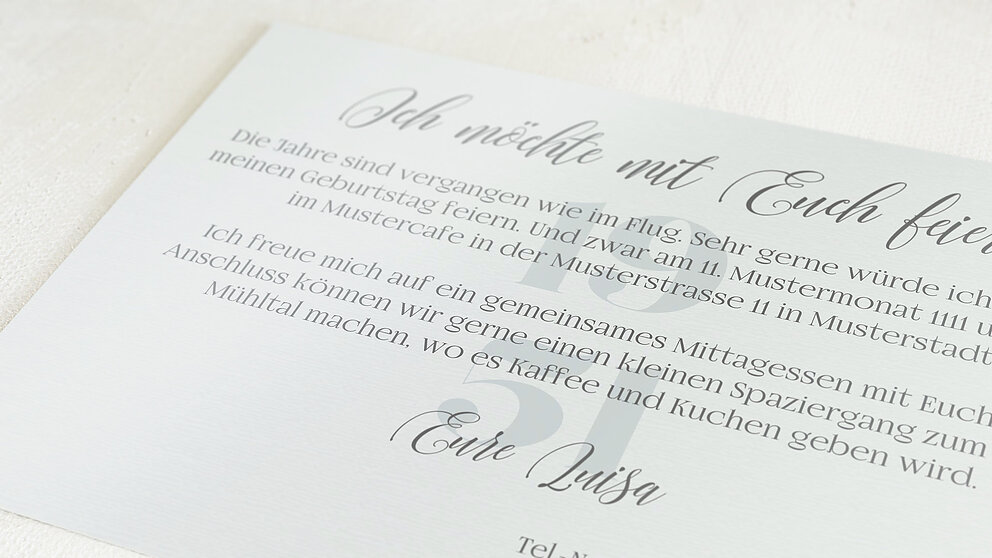 Ich möchte mit Euch feier
Die Jahre sind vergangen wie im Flug. Sehr gerne würde ich
meinen Geburtstag feiern. Und zwar am 11. Mustermonat 1111 u
im Mustercafe in der Musterstrasse 11 in Musterstadt
19
Ich freue mich auf ein gemeinsames Mittagessen mit Euch
Anschluss können wir gerne einen kleinen Spaziergang zum
Mühltal machen, wo es Kaffee und Kuchen geben wird.
51
Eure Luisa
Tel.-N